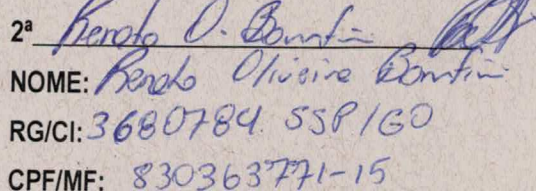 2ª Renato O. Bomfim
NOME: Renato Oliveira Bomfim
RG/CI: 3680784 SSP/GO
CPF/MF: 830363771-15